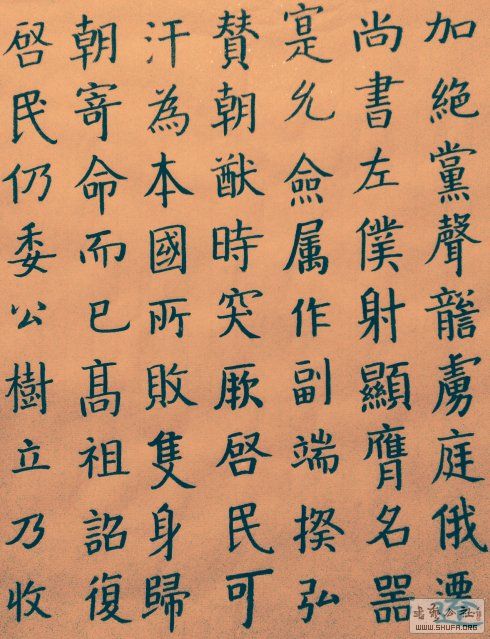 加絕黨聲讋虜庭俄
尚書左僕射顯膺名器
寔允僉属作副端揆弘
賛朝猷時突厥啓民可
汗為本國所敗隻身歸
朝寄命而已髙祖詔復
啓民仍委公樹立乃收
WWW.SHUFA.ORG